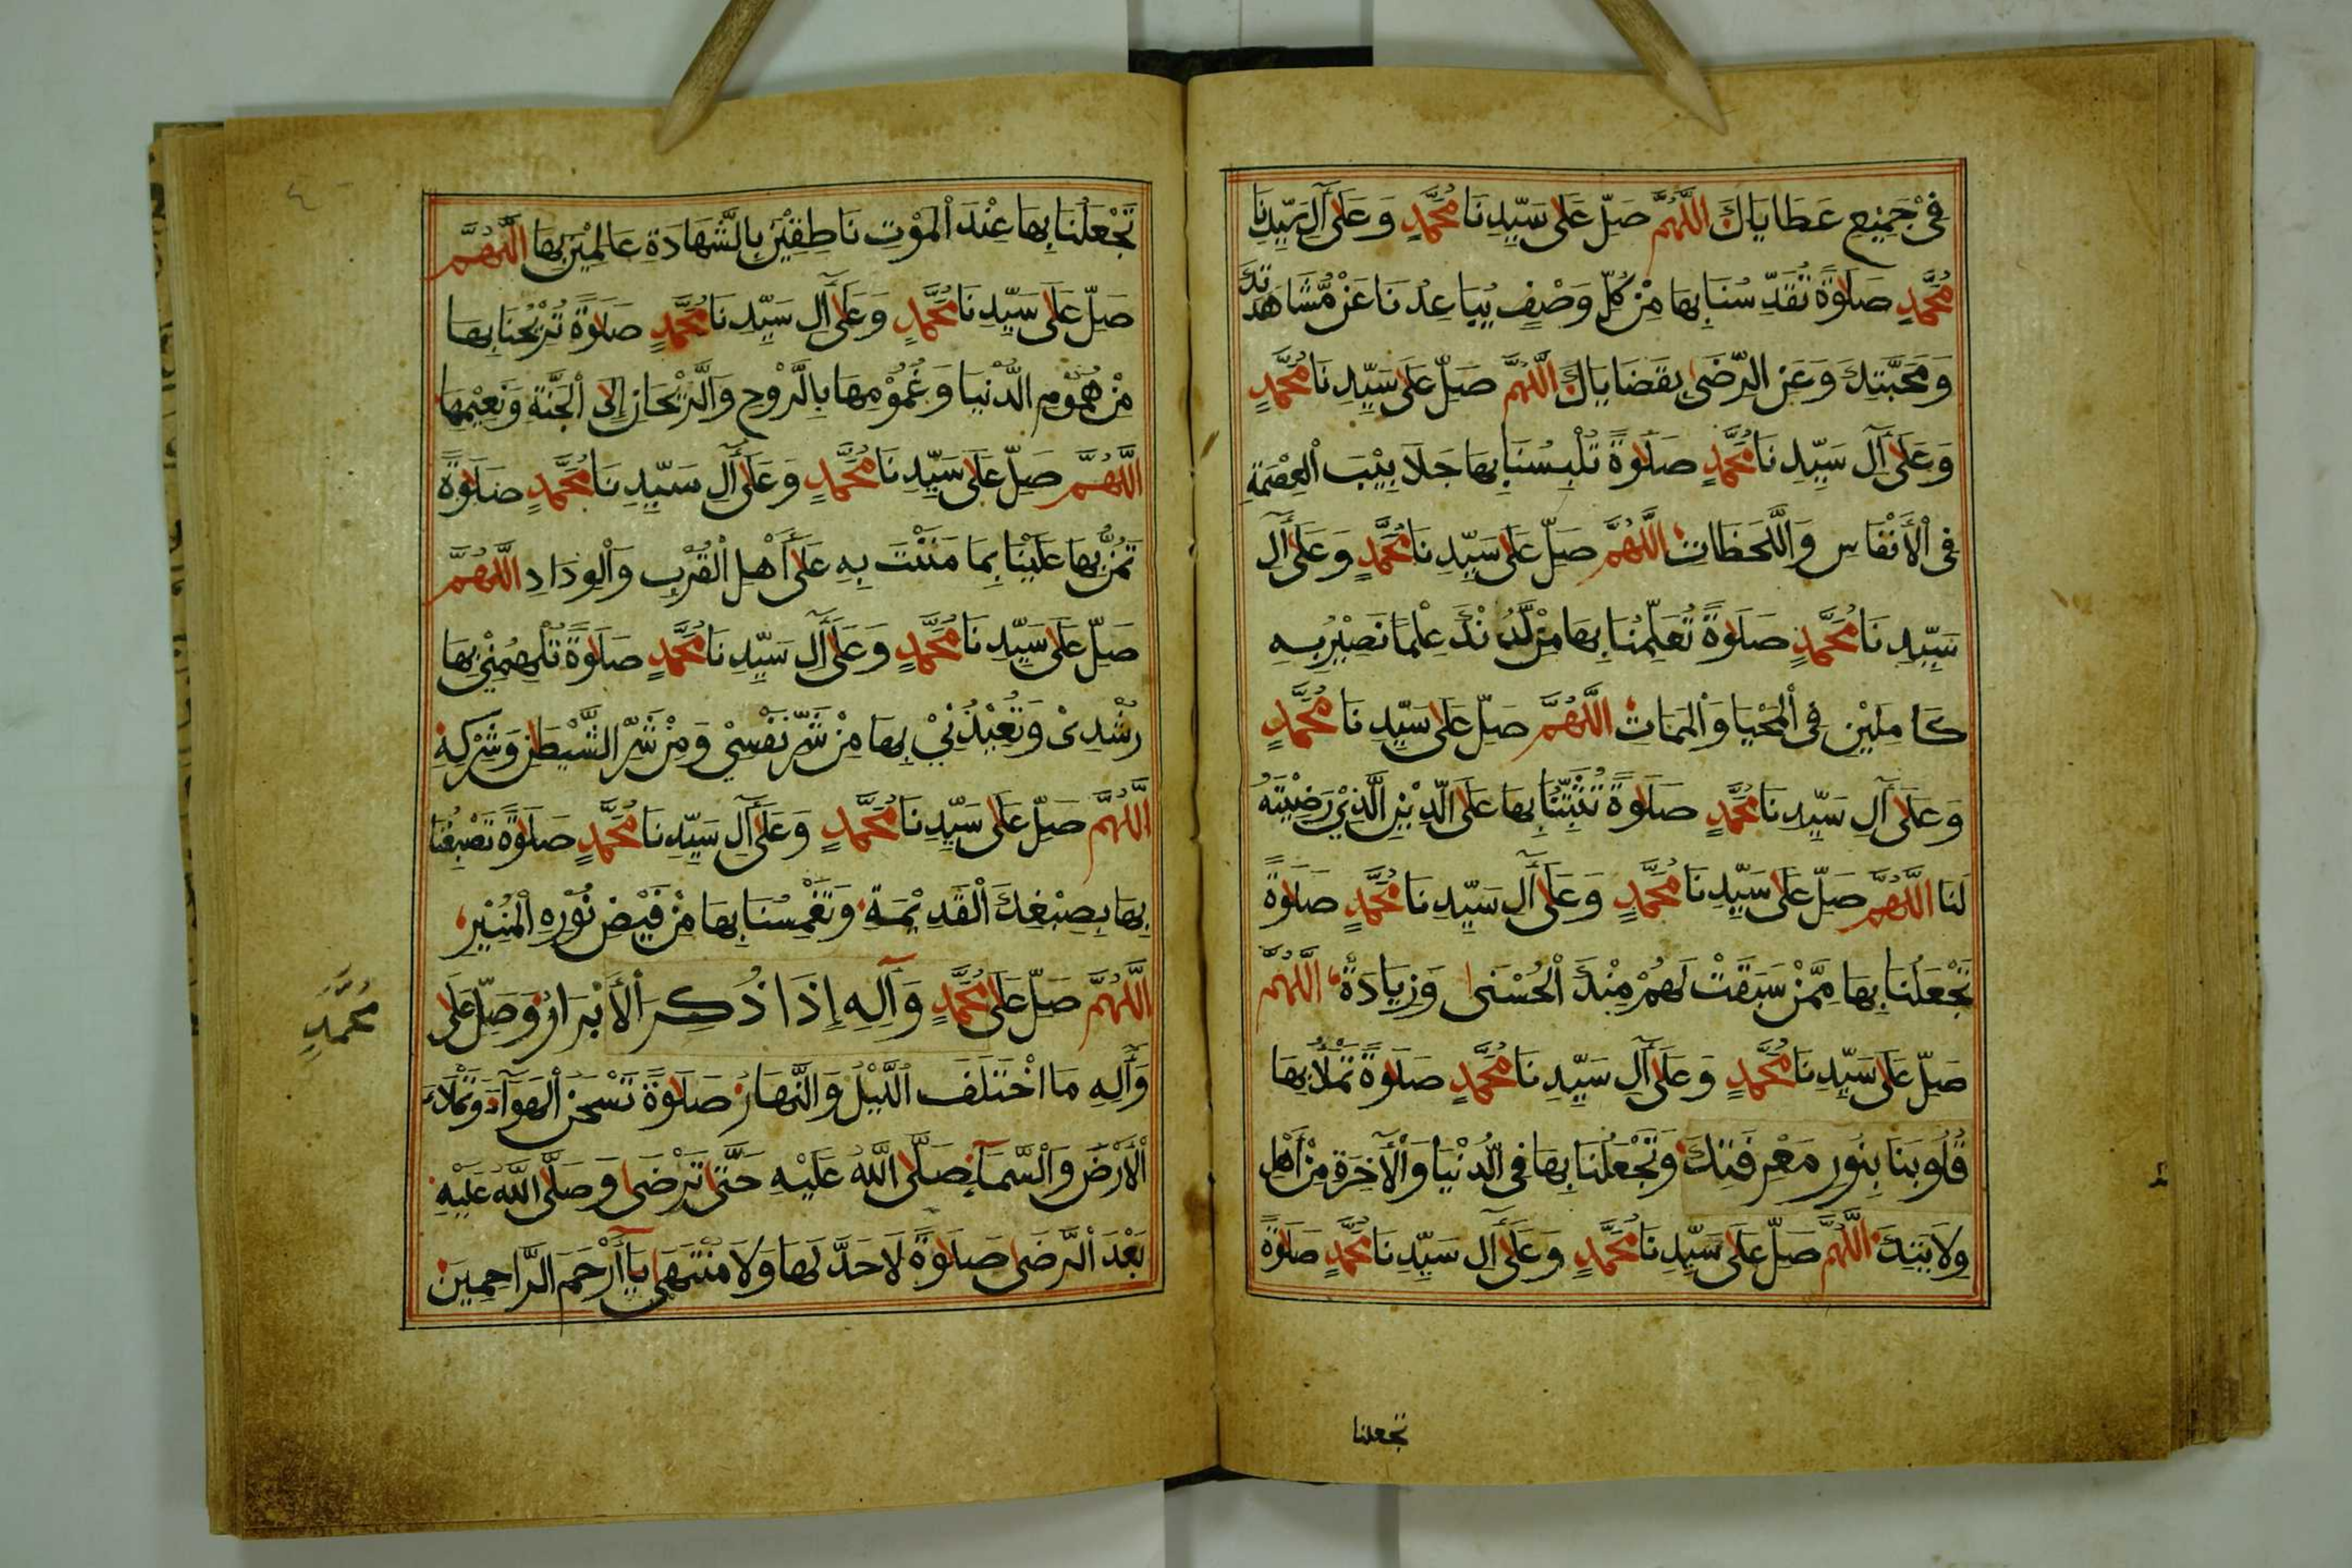 فِيْ جَمِيْعِ عَطَايَاكَ اللَّهُمَّ صَلِّ عَلَى سَيِّدِنَا مُحَمَّدٍ وَعَلَى آلِ سَيِّدِنَا
مُحَمَّدٍ صَلَوةً تُقَدِّسُنَا بِهَا مِنْ كُلِّ وَصْفٍ يُبَاعِدُنَا عَنْ مُشَاهَدَتِكَ
وَمَحَبَّتِكَ وَعَنِ الرِّضَى بِقَضَايَاكَ اللَّهُمَّ صَلِّ عَلَى سَيِّدِنَا مُحَمَّدٍ
وَعَلَى آلِ سَيِّدِنَا مُحَمَّدٍ صَلَوةً تُلْبِسُنَا بِهَا جَلَابِيْبَ الْعِصْمَةِ
فِي الْأَنْفَاسِ وَاللَّحَظَاتِ اللَّهُمَّ صَلِّ عَلَى سَيِّدِنَا مُحَمَّدٍ وَعَلَى آلِ
سَيِّدِنَا مُحَمَّدٍ صَلَوةً تُعَلِّمُنَا بِهَا مِنْ لَّدُنْكَ عِلْمًا نَصِيْرُ بِهِ
كَامِلِيْنَ فِي الْمَحْيَا وَالْمَمَاتِ اللَّهُمَّ صَلِّ عَلَى سَيِّدِنَا مُحَمَّدٍ
وَعَلَى آلِ سَيِّدِنَا مُحَمَّدٍ صَلَوةً تُثَبِّتُنَا بِهَا عَلَى الدِّيْنِ الَّذِيْ رَضِيْتَهُ
لَنَا اللَّهُمَّ صَلِّ عَلَى سَيِّدِنَا مُحَمَّدٍ وَعَلَى آلِ سَيِّدِنَا مُحَمَّدٍ صَلَوةً
تَجْعَلُنَا بِهَا مِمَّنْ سَبَقَتْ لَهُمْ مِنْكَ الْحُسْنَى وَزِيَادَةً اللَّهُمَّ
صَلِّ عَلَى سَيِّدِنَا مُحَمَّدٍ وَعَلَى آلِ سَيِّدِنَا مُحَمَّدٍ صَلَوةً تَمْلَأُ بِهَا
قُلُوبَنَا بِنُورِ مَعْرِفَتِكَ وَتَجْعَلُنَا بِهَا فِي الدُّنْيَا وَالْآخِرَةِ مِنْ أَهْلِ
وِلَايَتِكَ اللَّهُمَّ صَلِّ عَلَى سَيِّدِنَا مُحَمَّدٍ وَعَلَى آلِ سَيِّدِنَا مُحَمَّدٍ صَلَوةً
تجعلنا
تَجْعَلُنَا بِهَا عِنْدَ الْمَوْتِ نَاطِقِيْنَ بِالشَّهَادَةِ عَالِمِيْنَ بِهَا اللَّهُمَّ
صَلِّ عَلَى سَيِّدِنَا مُحَمَّدٍ وَعَلَى آلِ سَيِّدِنَا مُحَمَّدٍ صَلَوةً تُرِيْحُنَا بِهَا
مِنْ هُمُوْمِ الدُّنْيَا وَغُمُوْمِهَا بِالرَّوْحِ وَالرَّيْحَانِ إِلَى الْجَنَّةِ وَنَعِيْمِهَا
اللَّهُمَّ صَلِّ عَلَى سَيِّدِنَا مُحَمَّدٍ وَعَلَى آلِ سَيِّدِنَا مُحَمَّدٍ صَلَوةً
تَمُنُّ بِهَا عَلَيْنَا بِمَا مَنَنْتَ بِهِ عَلَى أَهْلِ الْقُرْبِ وَالْوِدَادِ اللَّهُمَّ
صَلِّ عَلَى سَيِّدِنَا مُحَمَّدٍ وَعَلَى آلِ سَيِّدِنَا مُحَمَّدٍ صَلَوةً تُلْهِمُنِيْ بِهَا
رُشْدِيْ وَتُعِيْذُنِيْ بِهَا مِنْ شَرِّ نَفْسِيْ وَمِنْ شَرِّ الشَّيْطٰنِ وَشِرْكِهِ
اللَّهُمَّ صَلِّ عَلَى سَيِّدِنَا مُحَمَّدٍ وَعَلَى آلِ سَيِّدِنَا مُحَمَّدٍ صَلَوةً تَصْبِغُنَا
بِهَا بِصِبْغِكَ الْقَدِيْمَةِ وَتَغْمِسُنَا بِهَا مِنْ فَيْضِ نُوْرِهِ الْمُنِيْرِ
اللَّهُمَّ صَلِّ عَلَى مُحَمَّدٍ وَآلِهِ إِذَا ذُكِرَ الْأَبْرَارُ وَصَلِّ عَلَى
مُحَمَّدٍ
وَآلِهِ مَا اخْتَلَفَ اللَّيْلُ وَالنَّهَارُ صَلَوةً تَشْحَنُ الْهَوَآءَ وَتَمْلَاءُ
الْأَرْضَ وَالسَّمَآءَ صَلَّى اللَّهُ عَلَيْهِ حَتَّى تَرْضَى وَصَلَّى اللَّهُ عَلَيْهِ
بَعْدَ الرَّضَى صَلَوةً لَا حَدَّ لَهَا وَلَا مُنْتَهَى يَا أَرْحَمَ الرَّاحِمِينَ